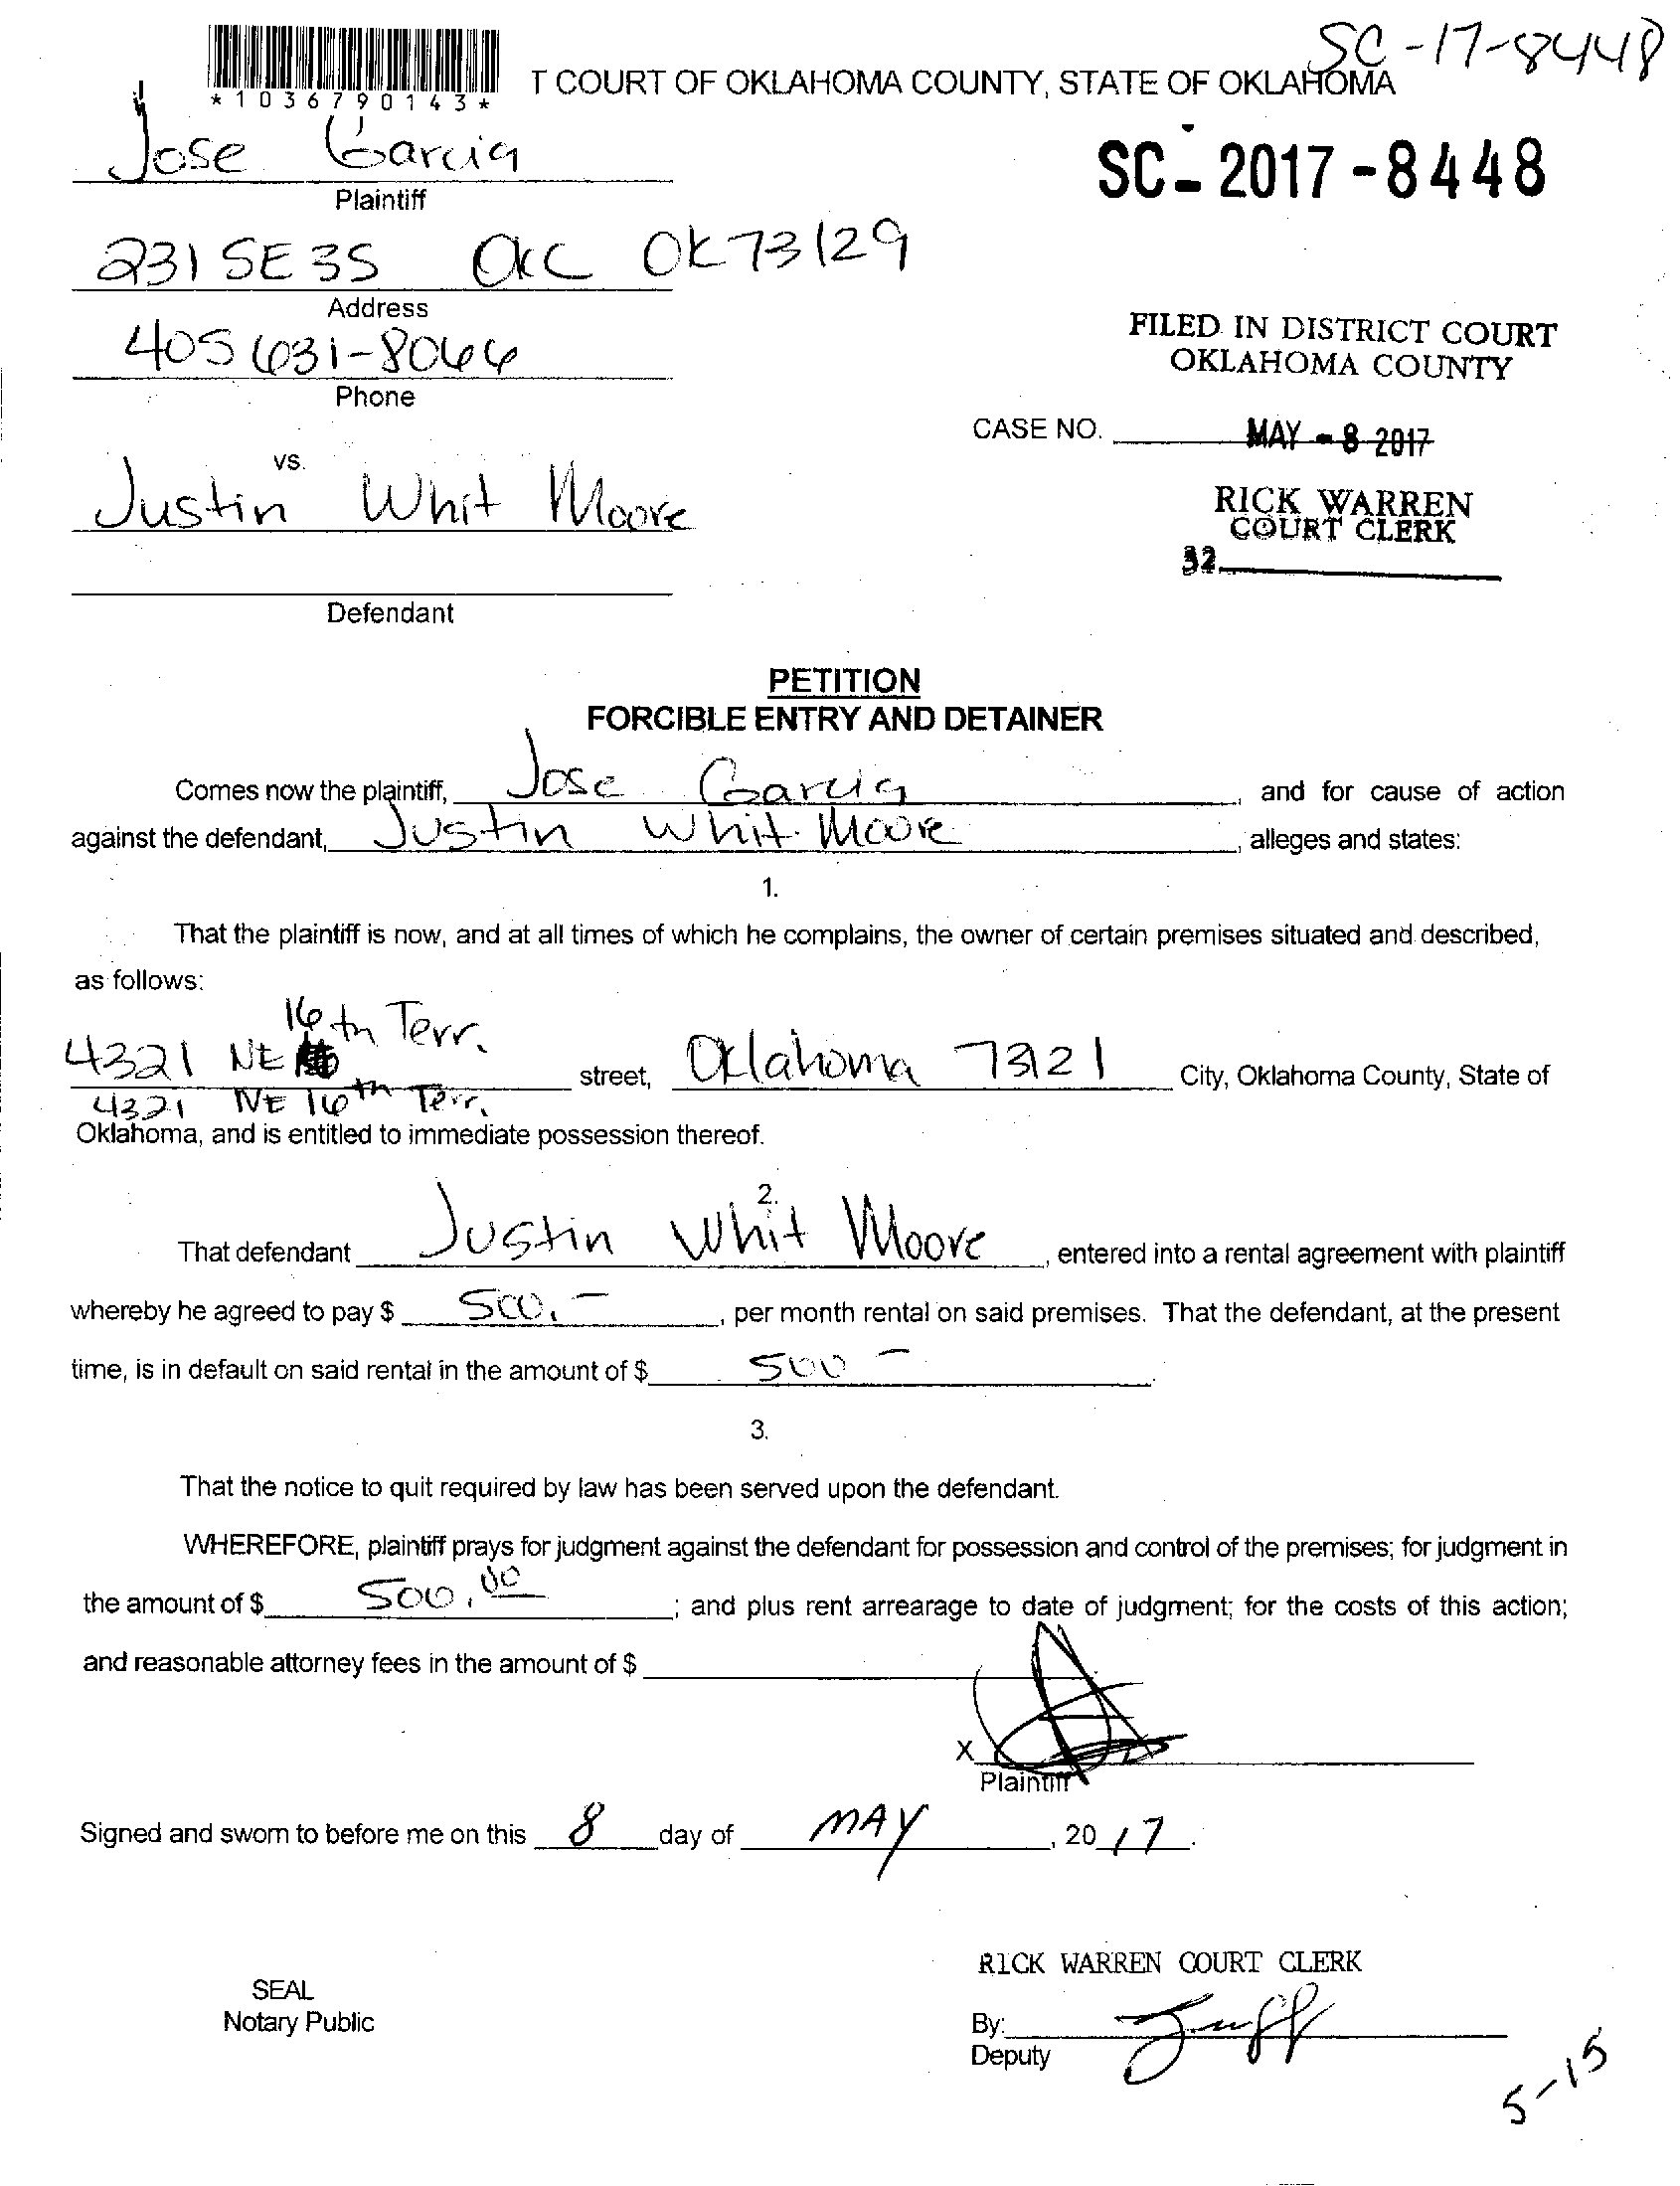 SC-17-8448
*1036790143*
T COURT OF OKLAHOMA COUNTY, STATE OF OKLAHOMA
Jose Garcia
SC-2017-8448
Plaintiff
231 SE 35 OKC OK 73129
Address
FILED IN DISTRICT COURT
OKLAHOMA COUNTY
405 631-8066
Phone
CASE NO.
MAY - 8 2017
vs.
Justin Whit Moore
RICK WARREN
COURT CLERK
32
Defendant
PETITION
FORCIBLE ENTRY AND DETAINER
Comes now the plaintiff, Jose Garcia, and for cause of action
against the defendant, Justin Whit Moore, alleges and states:
1.
That the plaintiff is now, and at all times of which he complains, the owner of certain premises situated and described,
as follows:
16th Terr.
4321 NE street, Oklahoma 73121 City, Oklahoma County, State of
4321 NE 16th Terr.
Oklahoma, and is entitled to immediate possession thereof.
2.
That defendant Justin Whit Moore, entered into a rental agreement with plaintiff
whereby he agreed to pay $ 500.-, per month rental on said premises. That the defendant, at the present
time, is in default on said rental in the amount of $ 500 -.
3.
That the notice to quit required by law has been served upon the defendant.
WHEREFORE, plaintiff prays for judgment against the defendant for possession and control of the premises; for judgment in
the amount of $ 500.00; and plus rent arrearage to date of judgment; for the costs of this action;
and reasonable attorney fees in the amount of $
X
Plaintiff
Signed and sworn to before me on this 8 day of MAY, 20 17.
RICK WARREN COURT CLERK
SEAL
Notary Public
By:
Deputy
5-15